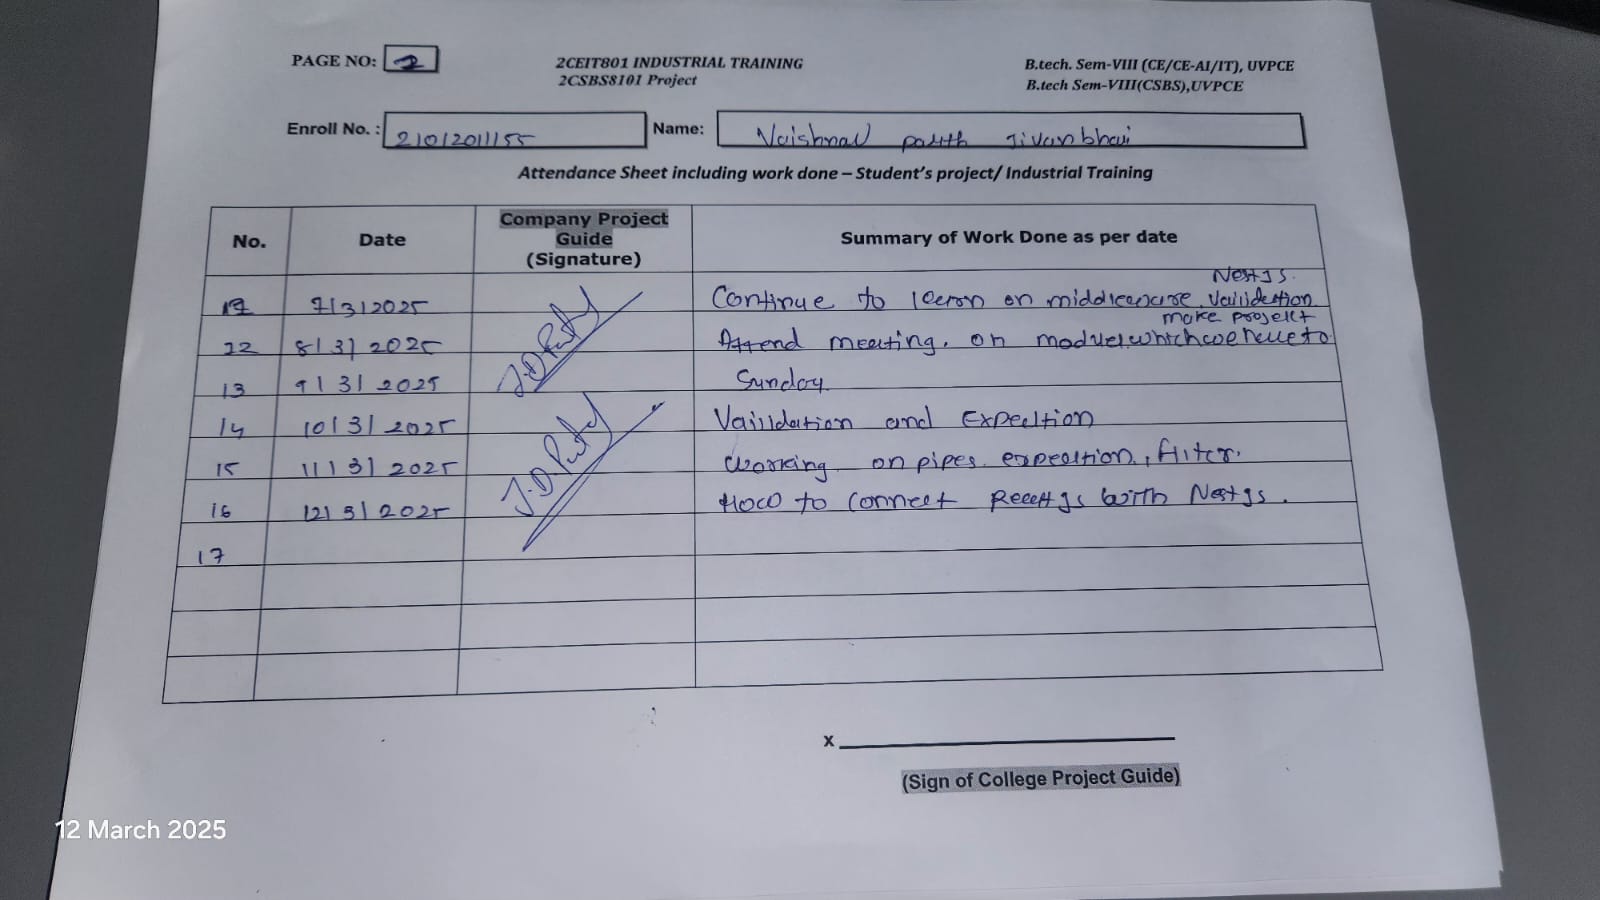 PAGE NO: 2
2CEIT801 INDUSTRIAL TRAINING
2CSBS8101 Project
B.tech. Sem-VIII (CE/CE-AI/IT), UVPCE
B.tech Sem-VIII(CSBS),UVPCE
Enroll No. : 21012011155 Name: Vaishnav parth Jivanbhai
Attendance Sheet including work done – Student's project/ Industrial Training
No. Date Company Project Guide (Signature) Summary of Work Done as per date
Nestjs.
7/3/2025 Continue to learn on middleware, Vaildation
make project
12 8/3/2025 J.D.Patel Attend meeting. on module which we have to
13 9/3/2025 Sunday
14 10/3/2025 Vaildation and Expection
15 11/3/2025 J.D.Patel Working on pipes. expection, filter.
16 12/3/2025 How to connect Reactjs with Nestjs.
17
x
(Sign of College Project Guide)
12 March 2025